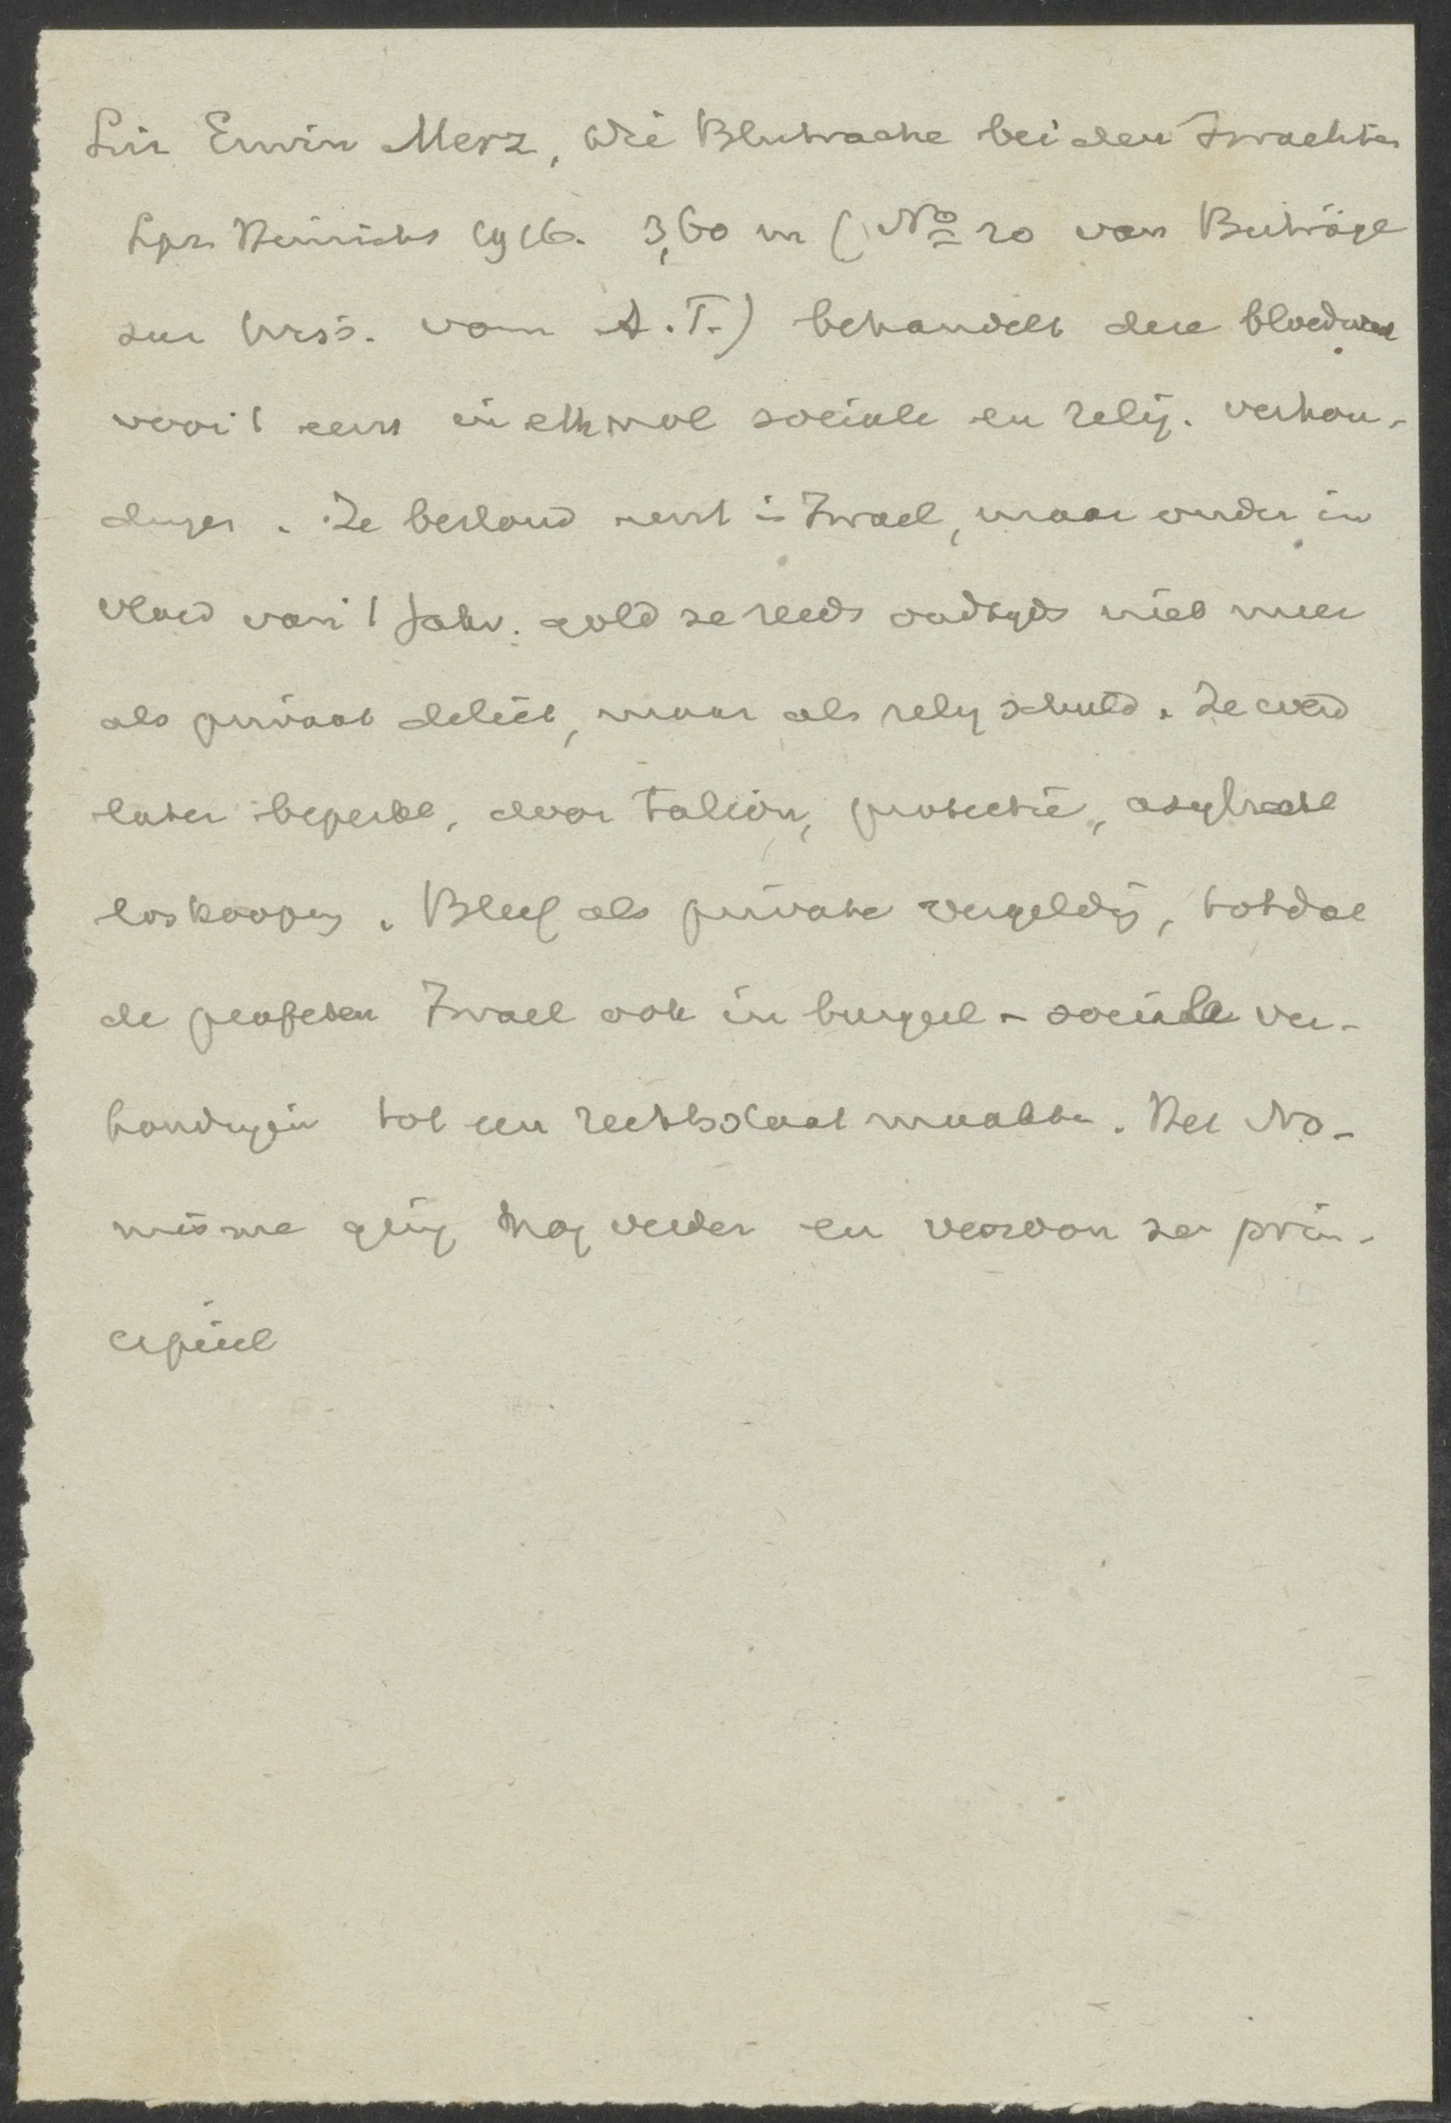 Lic Erwin Merz, Die Blutrache bei den Israeliten
Lpz. Heinrichs 1916. 3,60 m (No 20 van Beiträge
zur Wiss. vom A.T.) behandelt deze bloedwraak
voor 't eerst in ethnol sociale en relig. verhou-
dingen. Ze bestond eerst in Israel, maar onder in
vloed van 't Jahv. gold ze reeds oudtijds niet meer
als privaat delict, maar als relig schuld. Ze werd
later beperkt, door talion, protectie, asylrecht
loskooping. Bleef als private vergeldig, totdat
de profeten Israel ook in burgerl - sociale ver-
houdingen tot een rechtsstaat maakten. Het No-
misme ging nog verder en verwon ze prin-
cipieel